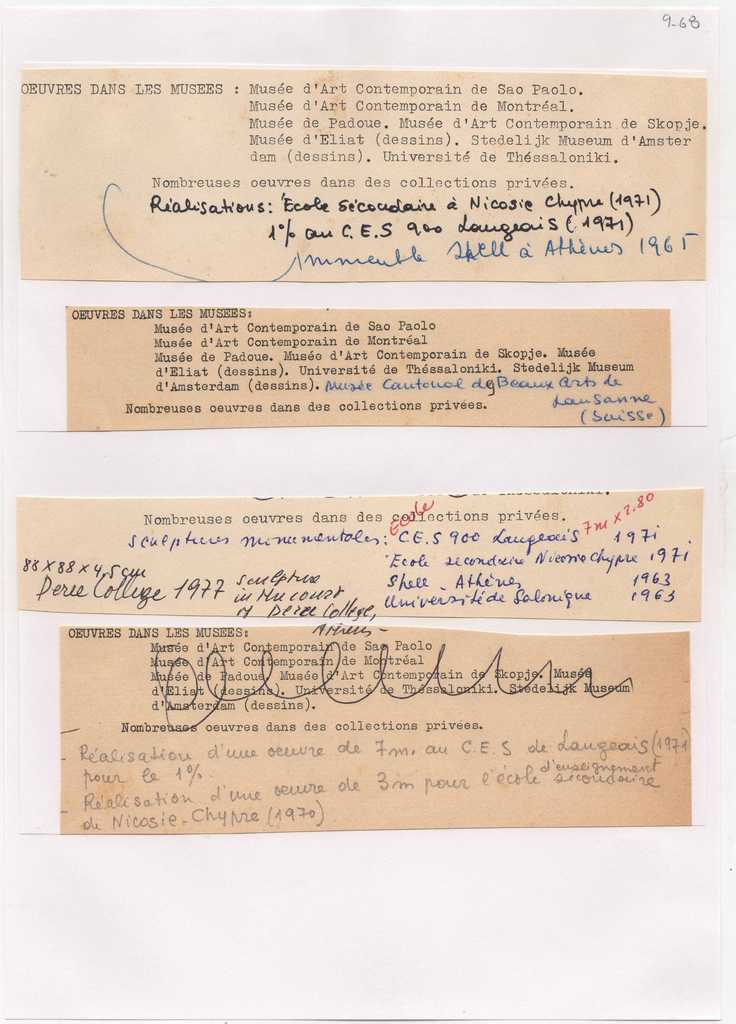 9-68
OEUVRES DANS LES MUSEES : Musée d'Art Contemporain de Sao Paolo.
Musée d'Art Contemporain de Montréal.
Musée de Padoue. Musée d'Art Contemporain de Skopje.
Musée d'Eliat (dessins). Stedelijk Museum d'Amster
dam (dessins). Université de Théssaloniki.
Nombreuses oeuvres dans des collections privées.
Réalisations: Ecole sécondaire à Nicosie Chypre (1971)
1% au C.E.S 900 Langeais (1971)
Immeuble Shell à Athènes 1965
OEUVRES DANS LES MUSEES:
Musée d'Art Contemporain de Sao Paolo
Musée d'Art Contemporain de Montréal
Musée de Padoue. Musée d'Art Contemporain de Skopje. Musée
d'Eliat (dessins). Université de Théssaloniki. Stedelijk Museum
d'Amsterdam (dessins). Musée Cantonal des Beaux Arts de
Lausanne
Nombreuses oeuvres dans des collections privées.
(Suisse)
Thessaloniki.
Nombreuses oeuvres dans des collections privées.
Ecole
7m x 2.80
sculptures monumentales: C.E.S 900 Langeais 1971
Ecole secondaire Nicosie Chypre 1971.
88 x 88 x 4,5 cm
Shell - Athènes 1963
Deree College 1977 sculpture
in the court
of Deree College,
Athens -
Université de Salonique 1963
OEUVRES DANS LES MUSEES:
Musée d'Art Contemporain de Sao Paolo
Musée d'Art Contemporain de Montréal
Musée de Padoue. Musée d'Art Contemporain de Skopje. Musée
d'Eliat (dessins). Université de Théssaloniki. Stedelijk Museum
d'Amsterdam (dessins).
Nombreuses oeuvres dans des collections privées.
- Réalisation d'une oeuvre de 7m. au C.E.S de Langeais (1971)
pour le 1%
d'enseignement
- Réalisation d'une oeuvre de 3m pour l'école secondaire
de Nicosie-Chypre (1970)